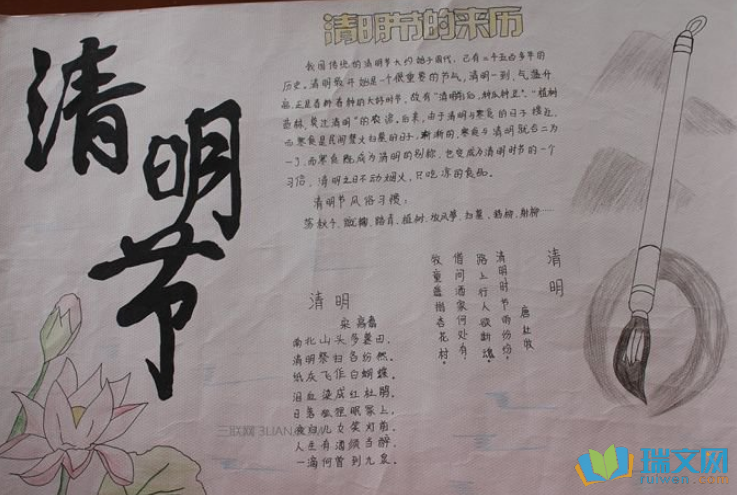 清
明
节
清明节的来历
我国传统的清明节大约始于周代，已有二千五百多年的
历史。清明最开始是一个很重要的节气，清明一到，气温升
高，正是春耕春种的大好时节，故有“清明前后，种瓜种豆”。“植树
造林，莫过清明”的农谚。后来，由于清明与寒食的日子接近，
而寒食是民间禁火扫墓的日子，渐渐的，寒食与清明就合二为
一了，而寒食既成为清明的别称，也变成为清明时节的一个
习俗，清明之日不动烟火，只吃凉的食品。
清明节风俗习惯：
荡秋千、蹴鞠、踏青、植树、放风筝、扫墓、插柳、射柳……
清明
唐 杜牧
清明时节雨纷纷，
路上行人欲断魂
借问酒家何处有
牧童遥指杏花村
清明
宋 高翥
南北山头多墓田，
清明祭扫各纷然。
纸灰飞作白蝴蝶，
泪血染成红杜鹃。
日暮狐狸眠冢上，
夜归儿女笑灯前。
人生有酒须当醉，
一滴何曾到九泉。
三联网 3LIAN
瑞文网
ruiwen.com